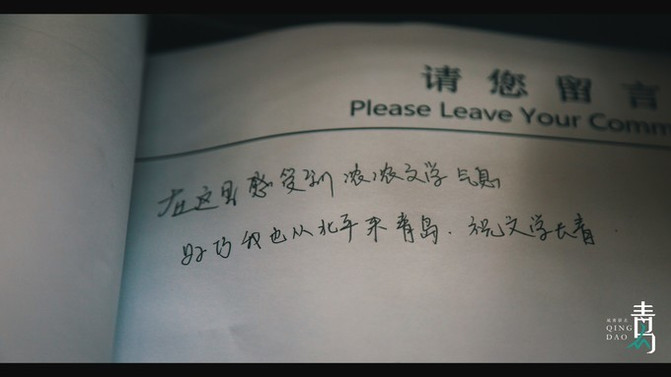 请您留言
Please Leave Your Comm
在这里感受到浓浓文学气息
好巧我也从北平来青岛.祝文学长青
QING
DAO